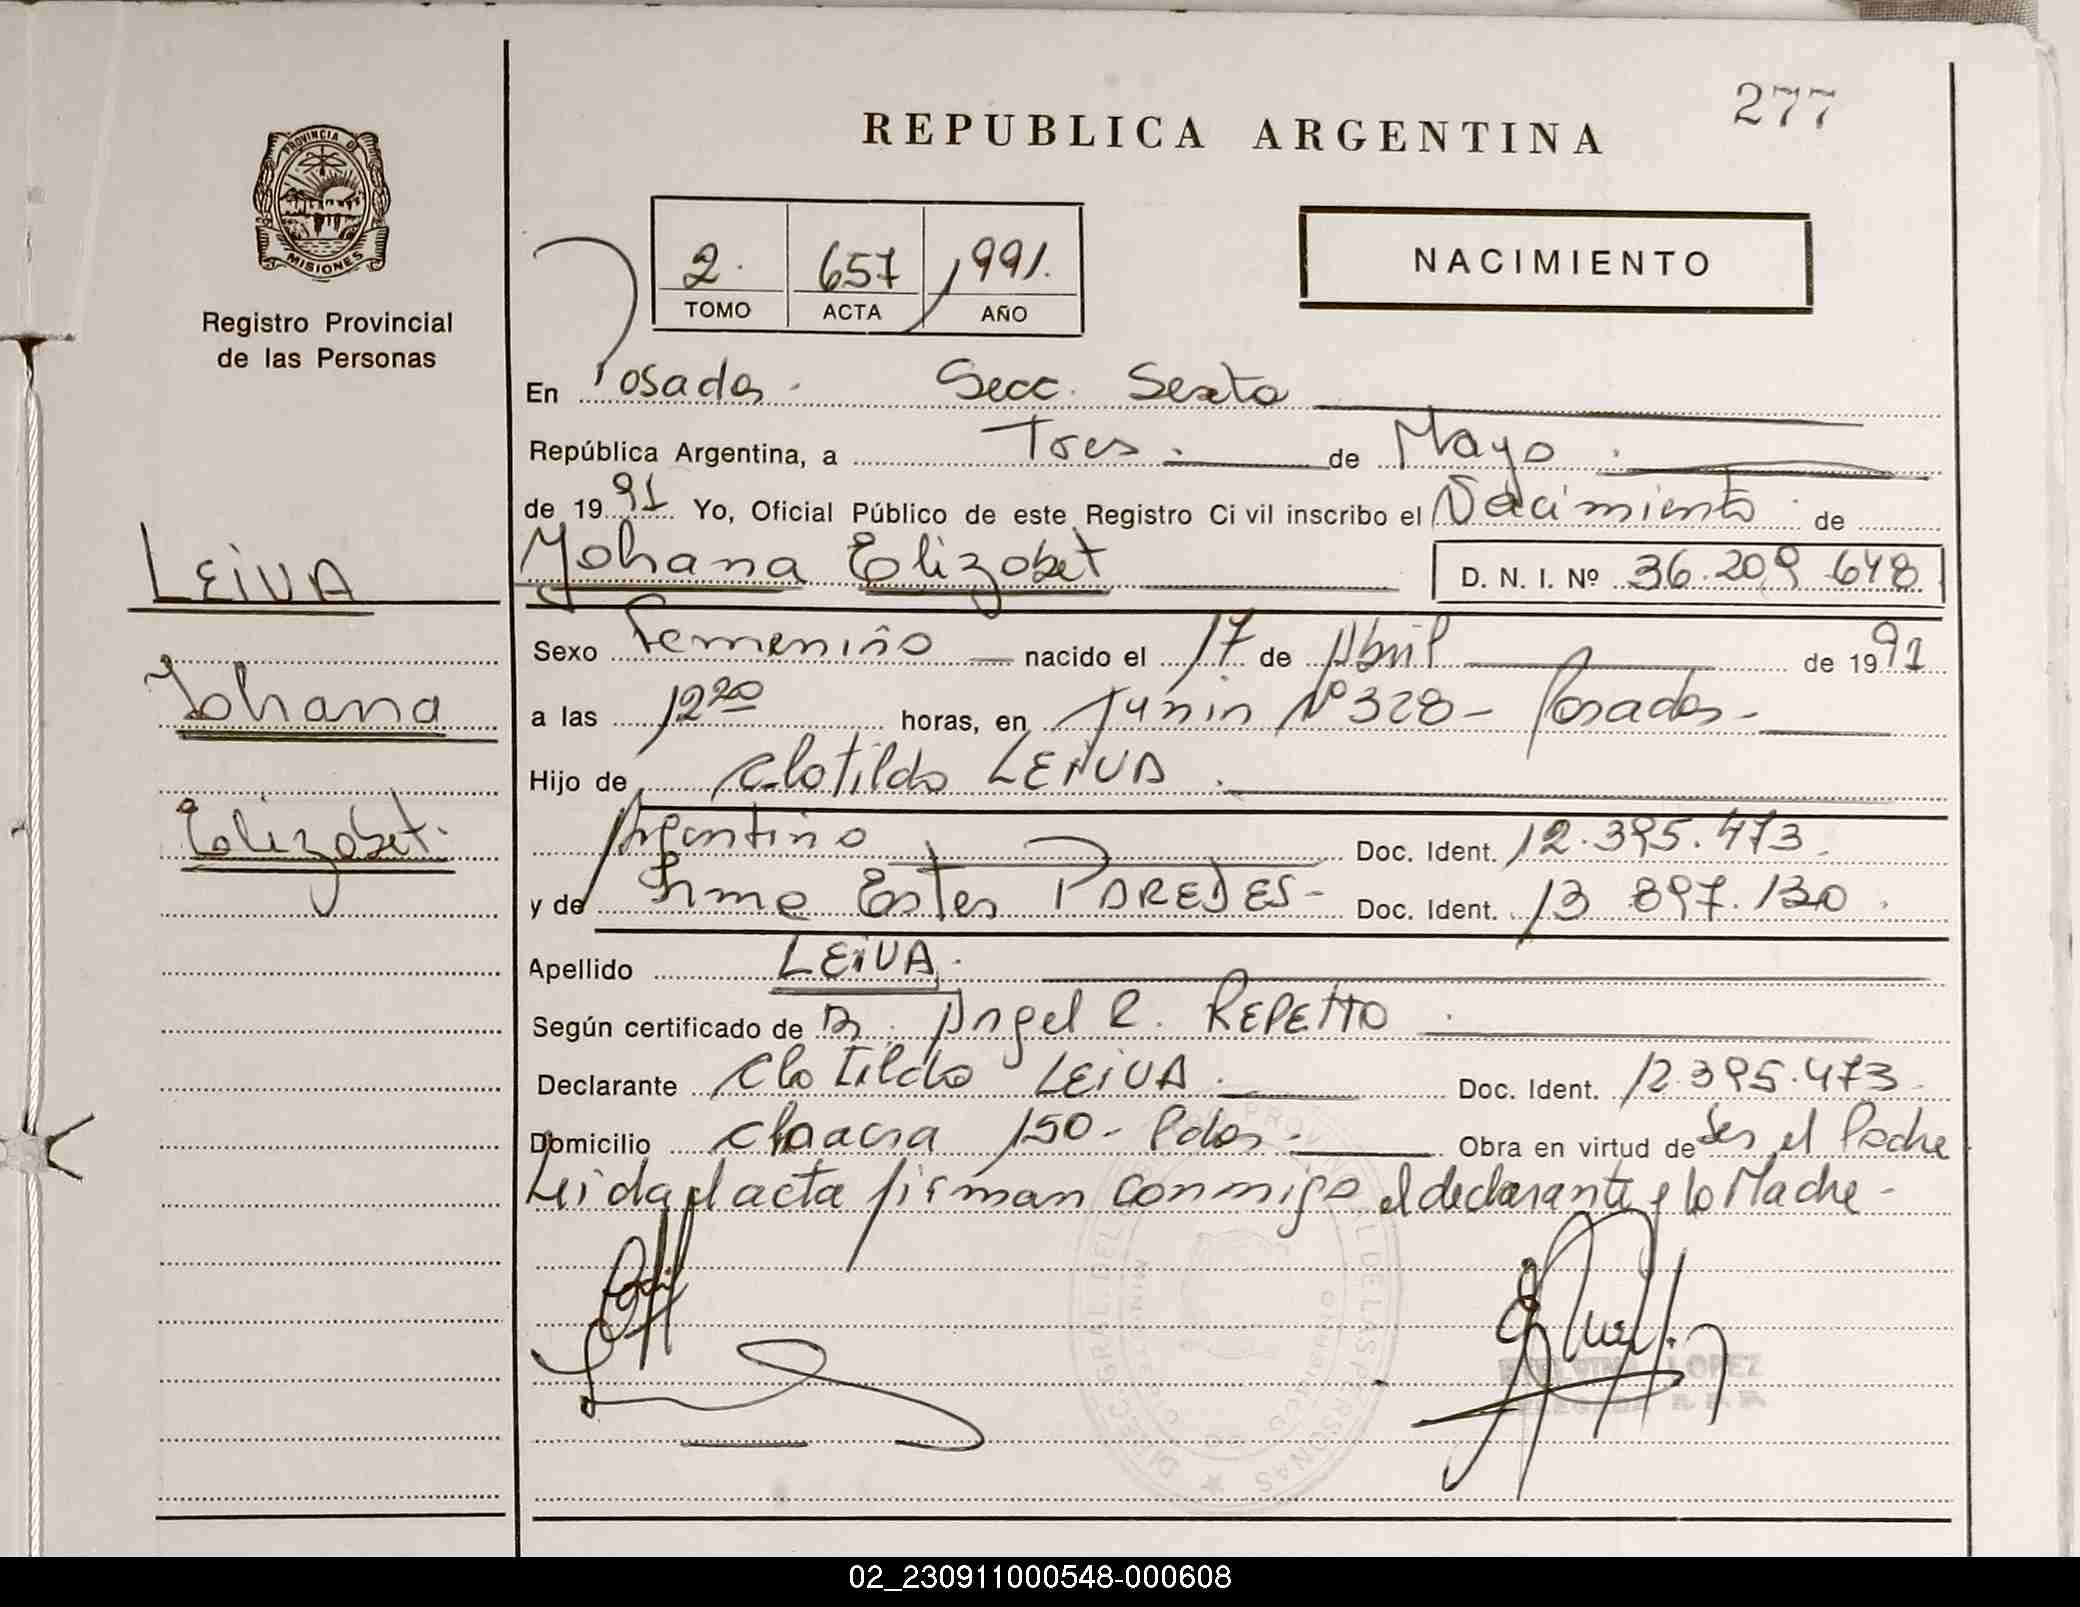 277
REPUBLICA ARGENTINA
PROVINCIA DE
MISIONES
Registro Provincial
de las Personas
2. 657 1991.
TOMO ACTA AÑO
NACIMIENTO
En Posadas. Secc. Sexta
República Argentina, a Tres. de Mayo.
de 1991 Yo, Oficial Público de este Registro Civil inscribo el Nacimiento de
LEIVA
Yohana Elizabet D. N. I. Nº 36.209.648
Sexo Femenino nacido el 17 de Abril de 1991
Yohana
a las 12 20 horas, en Junin Nº 328 - Posadas -
Hijo de Clotildo LEIVA.
Elizabet.
Argentino Doc. Ident. 12.395.473.
y de Irma Ester PAREDES - Doc. Ident. 13 897.130.
Apellido LEIVA.
Según certificado de Dr. Angel R. REPETTO.
Declarante Clotildo LEIVA. Doc. Ident. 12.395.473
Domicilio Chacra 150 - Pdas - Obra en virtud de Ser el Padre
Leida el acta firman conmigo el declarante y la Madre -
LOPEZ
02_230911000548-000608